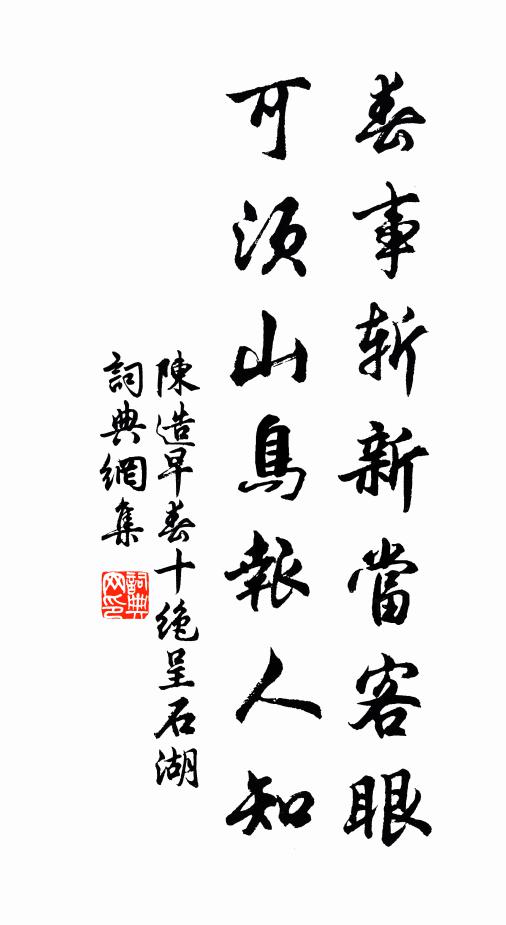 春事斬新當客眼
可須山鳥報人知
陳造早春十絶呈石湖
詞典網集
詞典網印